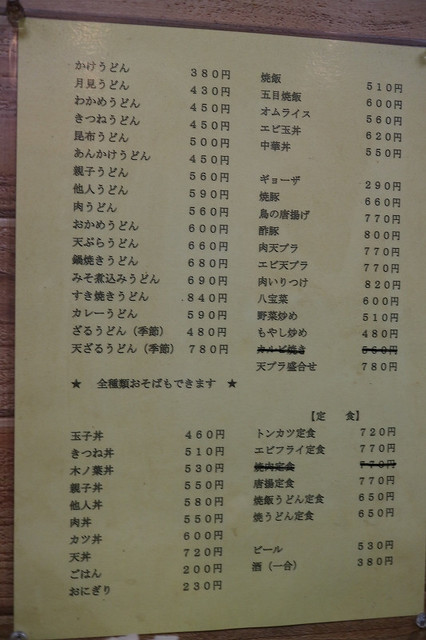 かけうどん 380円
月見うどん 430円
わかめうどん 450円
きつねうどん 450円
昆布うどん 500円
あんかけうどん 450円
親子うどん 560円
他人うどん 590円
肉うどん 560円
おかめうどん 600円
天ぷらうどん 660円
鍋焼きうどん 680円
みそ煮込みうどん 690円
すき焼きうどん 840円
カレーうどん 590円
ざるうどん（季節） 480円
天ざるうどん（季節） 780円
★ 全種類おそばもできます ★
玉子丼 460円
きつね丼 510円
木ノ葉丼 530円
親子丼 550円
他人丼 580円
肉丼 550円
カツ丼 600円
天丼 720円
ごはん 200円
おにぎり 230円
焼飯 510円
五目焼飯 600円
オムライス 560円
エビ玉丼 620円
中華丼 550円
ギョーザ 290円
焼豚 660円
鳥の唐揚げ 770円
酢豚 800円
肉天プラ 770円
エビ天プラ 770円
肉いりつけ 820円
八宝菜 600円
野菜炒め 510円
もやし炒め 480円
カルビ焼き 560円
天プラ盛合せ 780円
【定 食】
トンカツ定食 720円
エビフライ定食 770円
焼肉定食 770円
唐揚定食 770円
焼飯うどん定食 650円
焼うどん定食 650円
ビール 530円
酒（一合） 380円